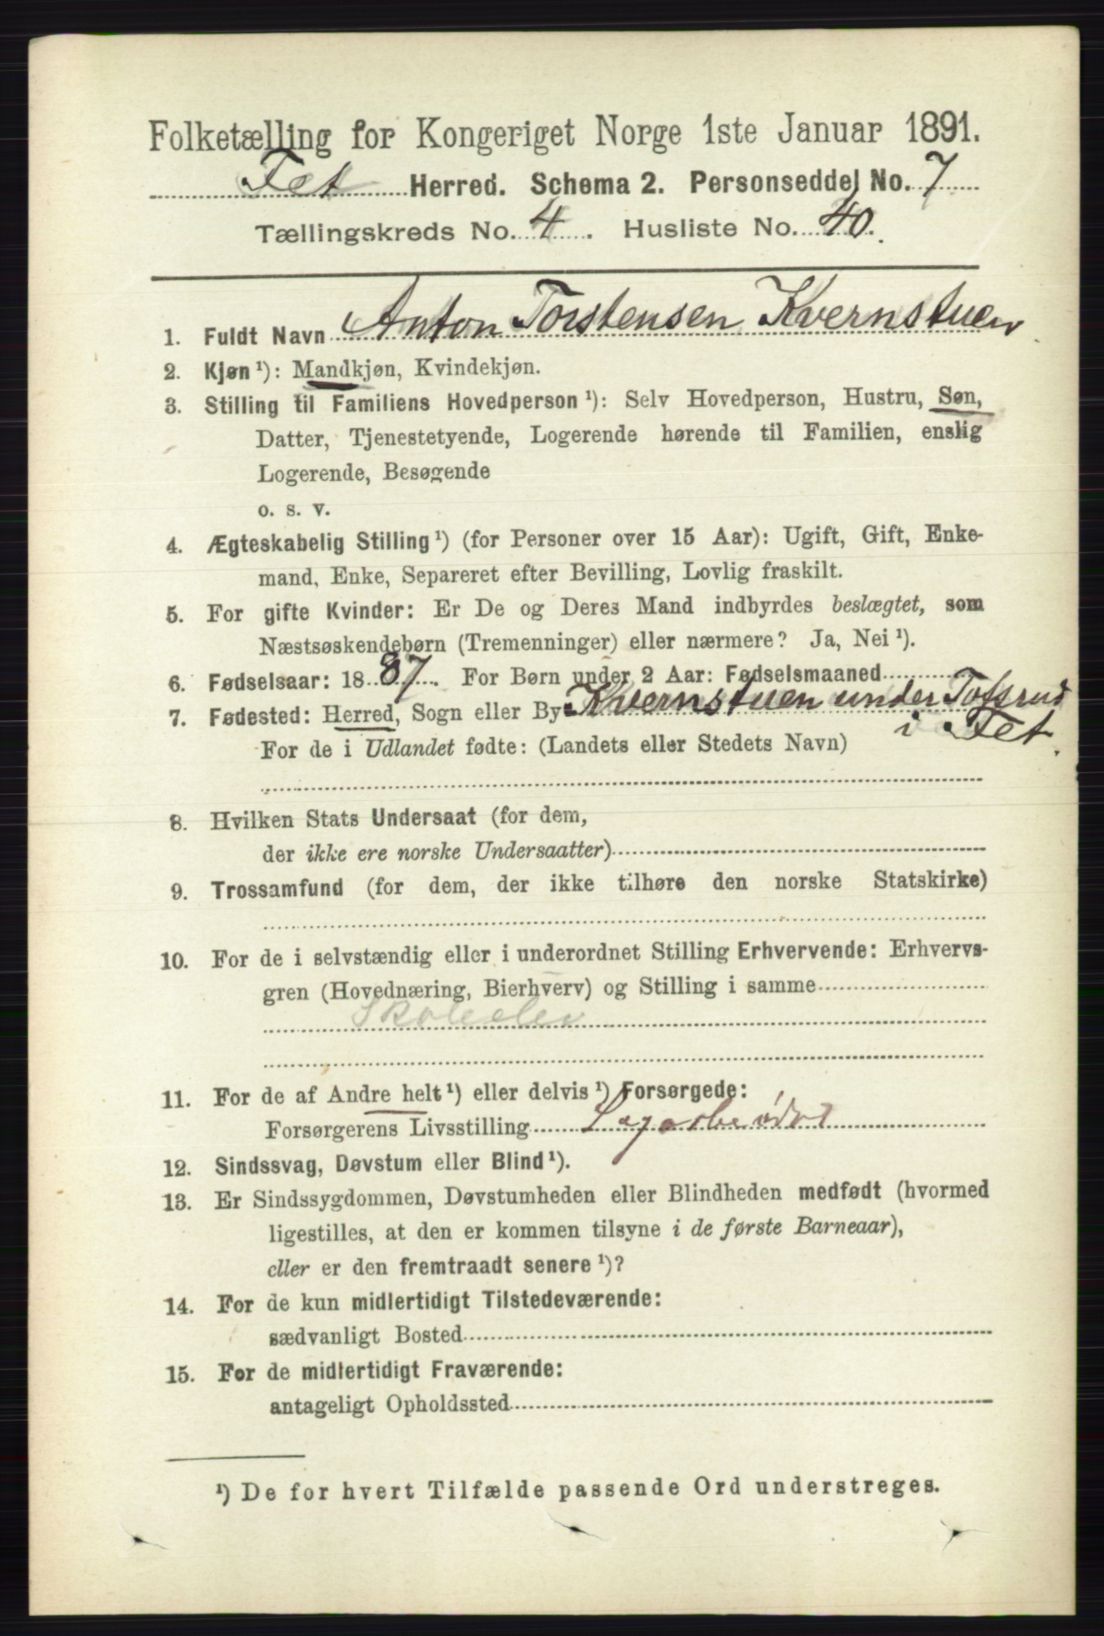 Folketælling for Kongeriget Norge 1ste Januar 1891.
Fet Herred. Schema 2. Personseddel No. 7
Tællingskreds No. 4. Husliste No. 40.
1. Fuldt Navn Anton Torstensen Kvernstuen
2. Kjøn ¹): Mandkjøn, Kvindekjøn.
3. Stilling til Familiens Hovedperson ¹): Selv Hovedperson, Hustru, Søn,
Datter, Tjenestetyende, Logerende hørende til Familien, enslig
Logerende, Besøgende
o. s. v.
4. Ægteskabelig Stilling ¹) (for Personer over 15 Aar): Ugift, Gift, Enke-
mand, Enke, Separeret efter Bevilling, Lovlig fraskilt.
5. For gifte Kvinder: Er De og Deres Mand indbyrdes beslægtet, som
Næstsøskendebørn (Tremenninger) eller nærmere? Ja, Nei ¹).
6. Fødselsaar: 1887. For Børn under 2 Aar: Fødselsmaaned
7. Fødested: Herred, Sogn eller By Kvernstuen under Tofsrud
i Fet.
For de i Udlandet fødte: (Landets eller Stedets Navn)
8. Hvilken Stats Undersaat (for dem,
der ikke ere norske Undersaatter)
9. Trossamfund (for dem, der ikke tilhøre den norske Statskirke)
10. For de i selvstændig eller i underordnet Stilling Erhvervende: Erhvervs-
gren (Hovednæring, Bierhverv) og Stilling i samme
Skoleelev
11. For de af Andre helt ¹) eller delvis ¹) Forsørgede:
Forsørgerens Livsstilling
12. Sindssvag, Døvstum eller Blind ¹).
13. Er Sindssygdommen, Døvstumheden eller Blindheden medfødt (hvormed
ligestilles, at den er kommen tilsyne i de første Barneaar),
eller er den fremtraadt senere ¹)?
14. For de kun midlertidigt Tilstedeværende:
sædvanligt Bosted
15. For de midlertidigt Fraværende:
antageligt Opholdssted
¹) De for hvert Tilfælde passende Ord understreges.